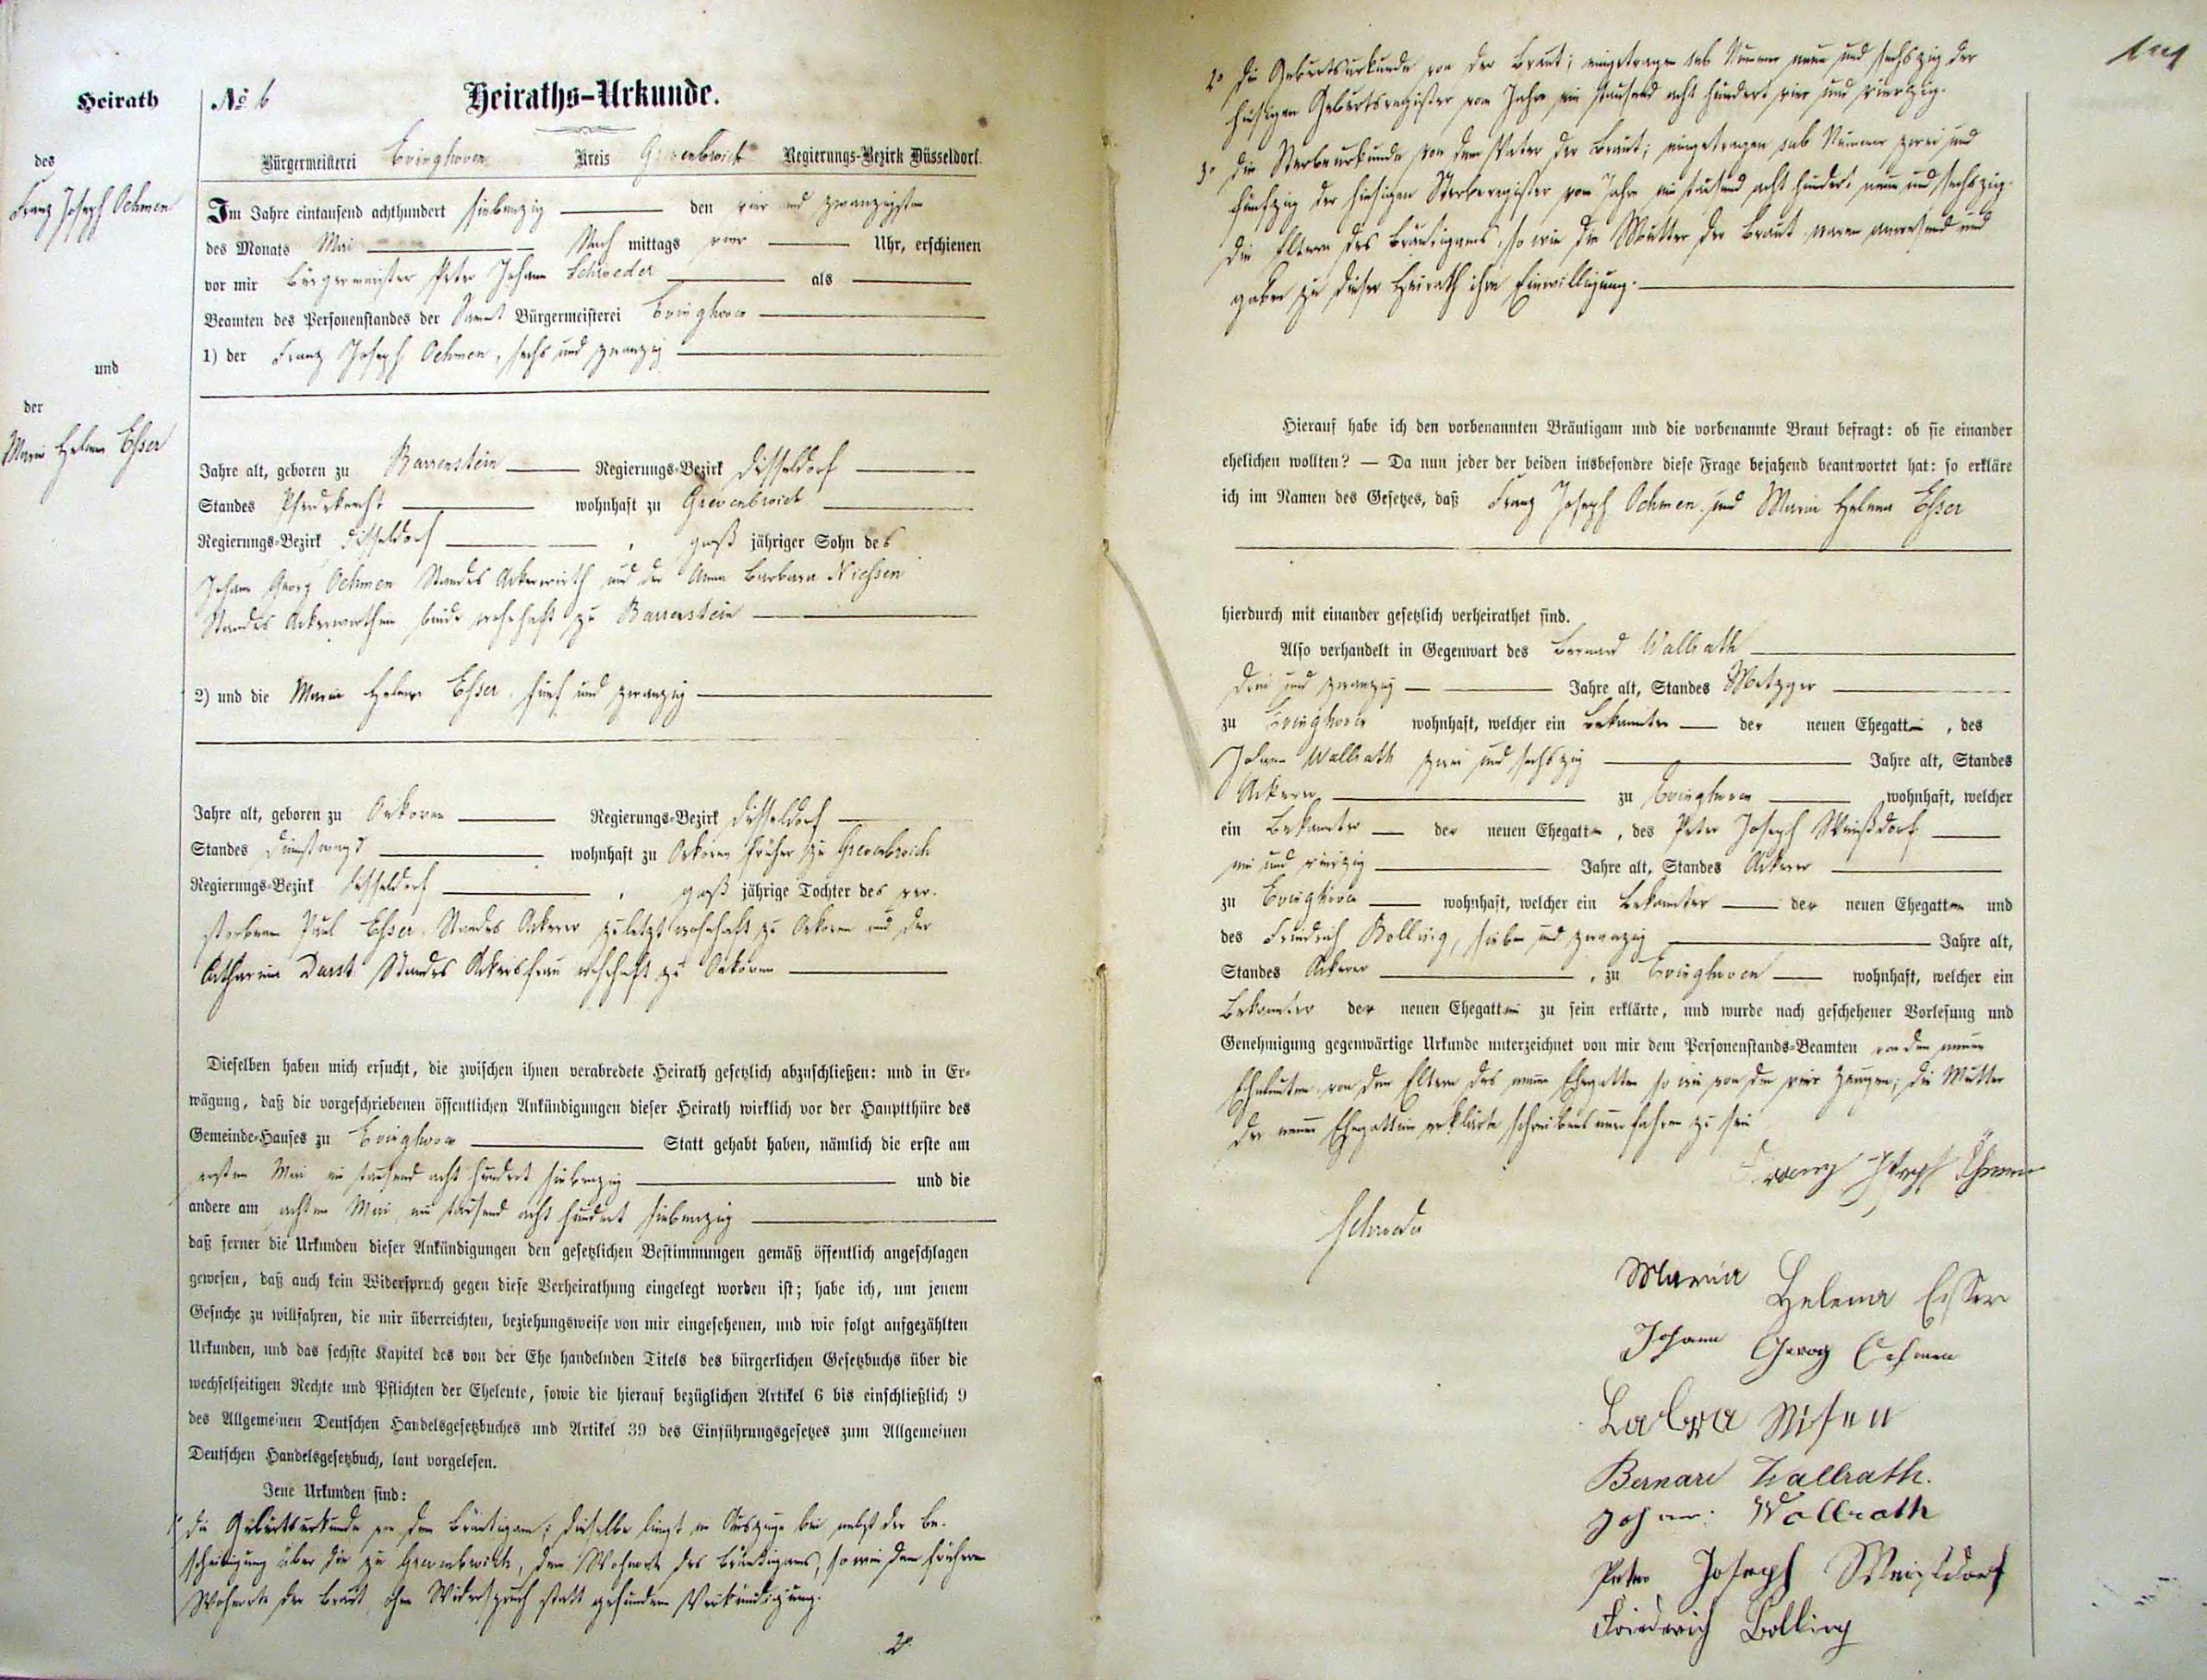 Heirath
des
Franz Joseph Oehmen
und
der
Maria Helena Esser
№ 6
Heiraths-Urkunde.
Bürgermeisterei Evinghoven Kreis Grevenbroich Regierungs-Bezirk Düsseldorf.
Im Jahre eintausend achthundert siebenzig den vier und zwanzigsten
des Monats Mai Nach mittags vier Uhr, erschienen
vor mir Bürgermeister Peter Johann Schroeder als
Beamten des Personenstandes der Samt Bürgermeisterei Evinghoven
1) der Franz Joseph Oehmen, sechs und zwanzig
Jahre alt, geboren zu Barrenstein Regierungs-Bezirk Düsseldorf
Standes Pferdeknecht wohnhaft zu Grevenbroich
Regierungs-Bezirk Düsseldorf, groß jähriger Sohn des
Johann Georg Oehmen Standes Ackerwirth und der Anna Barbara Niessen
Standes Ackerwirthin beide wohnhaft zu Barrenstein
2) und die Maria Helena Esser, fünf und zwanzig
Jahre alt, geboren zu Oekoven Regierungs-Bezirk Düsseldorf
Standes Dienstmagd wohnhaft zu Oekoven früher zu Grevenbroich
Regierungs-Bezirk Düsseldorf, groß jährige Tochter des ver-
storbenen Paul Esser, Standes Ackerer zuletzt wohnhaft zu Oekoven und der
Catharina Durst Standes Ackersfrau wohnhaft zu Oekoven
Dieselben haben mich ersucht, die zwischen ihnen verabredete Heirath gesetzlich abzuschließen: und in Er-
wägung, daß die vorgeschriebenen öffentlichen Ankündigungen dieser Heirath wirklich vor der Hauptthüre des
Gemeinde-Hauses zu Evinghoven Statt gehabt haben, nämlich die erste am
ersten Mai ein tausend acht hundert siebenzig und die
andere am achten Mai ein tausend acht hundert siebenzig
daß ferner die Urkunden dieser Ankündigungen den gesetzlichen Bestimmungen gemäß öffentlich angeschlagen
gewesen, daß auch kein Widerspruch gegen diese Verheirathung eingelegt worden ist; habe ich, um jenem
Gesuche zu willfahren, die mir überreichten, beziehungsweise von mir eingesehenen, und wie folgt aufgezählten
Urkunden, und das sechste Kapitel des von der Ehe handelnden Titels des bürgerlichen Gesetzbuchs über die
wechselseitigen Rechte und Pflichten der Eheleute, sowie die hierauf bezüglichen Artikel 6 bis einschließlich 9
des Allgemeinen Deutschen Handelsgesetzbuches und Artikel 39 des Einführungsgesetzes zum Allgemeinen
Deutschen Handelsgesetzbuch, laut vorgelesen.
Jene Urkunden sind:
1° die Geburtsurkunde von dem Bräutigam; dieselbe liegt im Auszuge bei nebst der Be-
scheinigung über die zu Grevenbroich, dem Wohnorte des Bräutigams, so wie dem früheren
Wohnorte der Braut, ohne Widerspruch statt gefundene Verkündigung.
2°
2° die Geburtsurkunde von der Braut; eingetragen sub Nummer neun und sechszig der
hiesigen Geburtsregister vom Jahre ein tausend acht hundert vier und vierzig.
3° die Sterbeurkunde von dem Vater der Braut; eingetragen sub Nummer zwei und
fünfzig der hiesigen Sterberegister vom Jahre ein tausend acht hundert neun und sechszig.
Die Eltern des Bräutigams, so wie die Mutter der Braut waren anwesend und
gaben zu dieser Heirath ihre Einwilligung.
Hierauf habe ich den vorbenannten Bräutigam und die vorbenannte Braut befragt: ob sie einander
ehelichen wollten? — Da nun jeder der beiden insbesondre diese Frage bejahend beantwortet hat: so erkläre
ich im Namen des Gesetzes, daß Franz Joseph Oehmen und Maria Helena Esser
hierdurch mit einander gesetzlich verheirathet sind.
Also verhandelt in Gegenwart des Bernard Wallrath
drei und zwanzig Jahre alt, Standes Metzger
zu Evinghoven wohnhaft, welcher ein Bekannter der neuen Ehegatten, des
Johann Wallrath zwei und sechszig Jahre alt, Standes
Ackerer zu Evinghoven wohnhaft, welcher
ein Bekannter der neuen Ehegatten, des Peter Joseph Weißdorf
ein und vierzig Jahre alt, Standes Ackerer
zu Evinghoven wohnhaft, welcher ein Bekannter der neuen Ehegatten und
des Friedrich Bolling, sieben und zwanzig Jahre alt,
Standes Ackerer, zu Evinghoven wohnhaft, welcher ein
Bekannter der neuen Ehegatten zu sein erklärte, und wurde nach geschehener Vorlesung und
Genehmigung gegenwärtige Urkunde unterzeichnet von mir dem Personenstands-Beamten von den neuen
Eheleuten von den Eltern des neuen Ehegatten so wie von den vier Zeugen; die Mutter
der neuen Ehegattin erklärte schreibens unerfahren zu sein
Franz Joseph Öhmen
Schroeder
Maria Helena Esser
Johann Georg Oehmen
Bernard Wallrath.
Johan: Wallrath
Peter Joseph Weißdorf
Friedrich Bolling